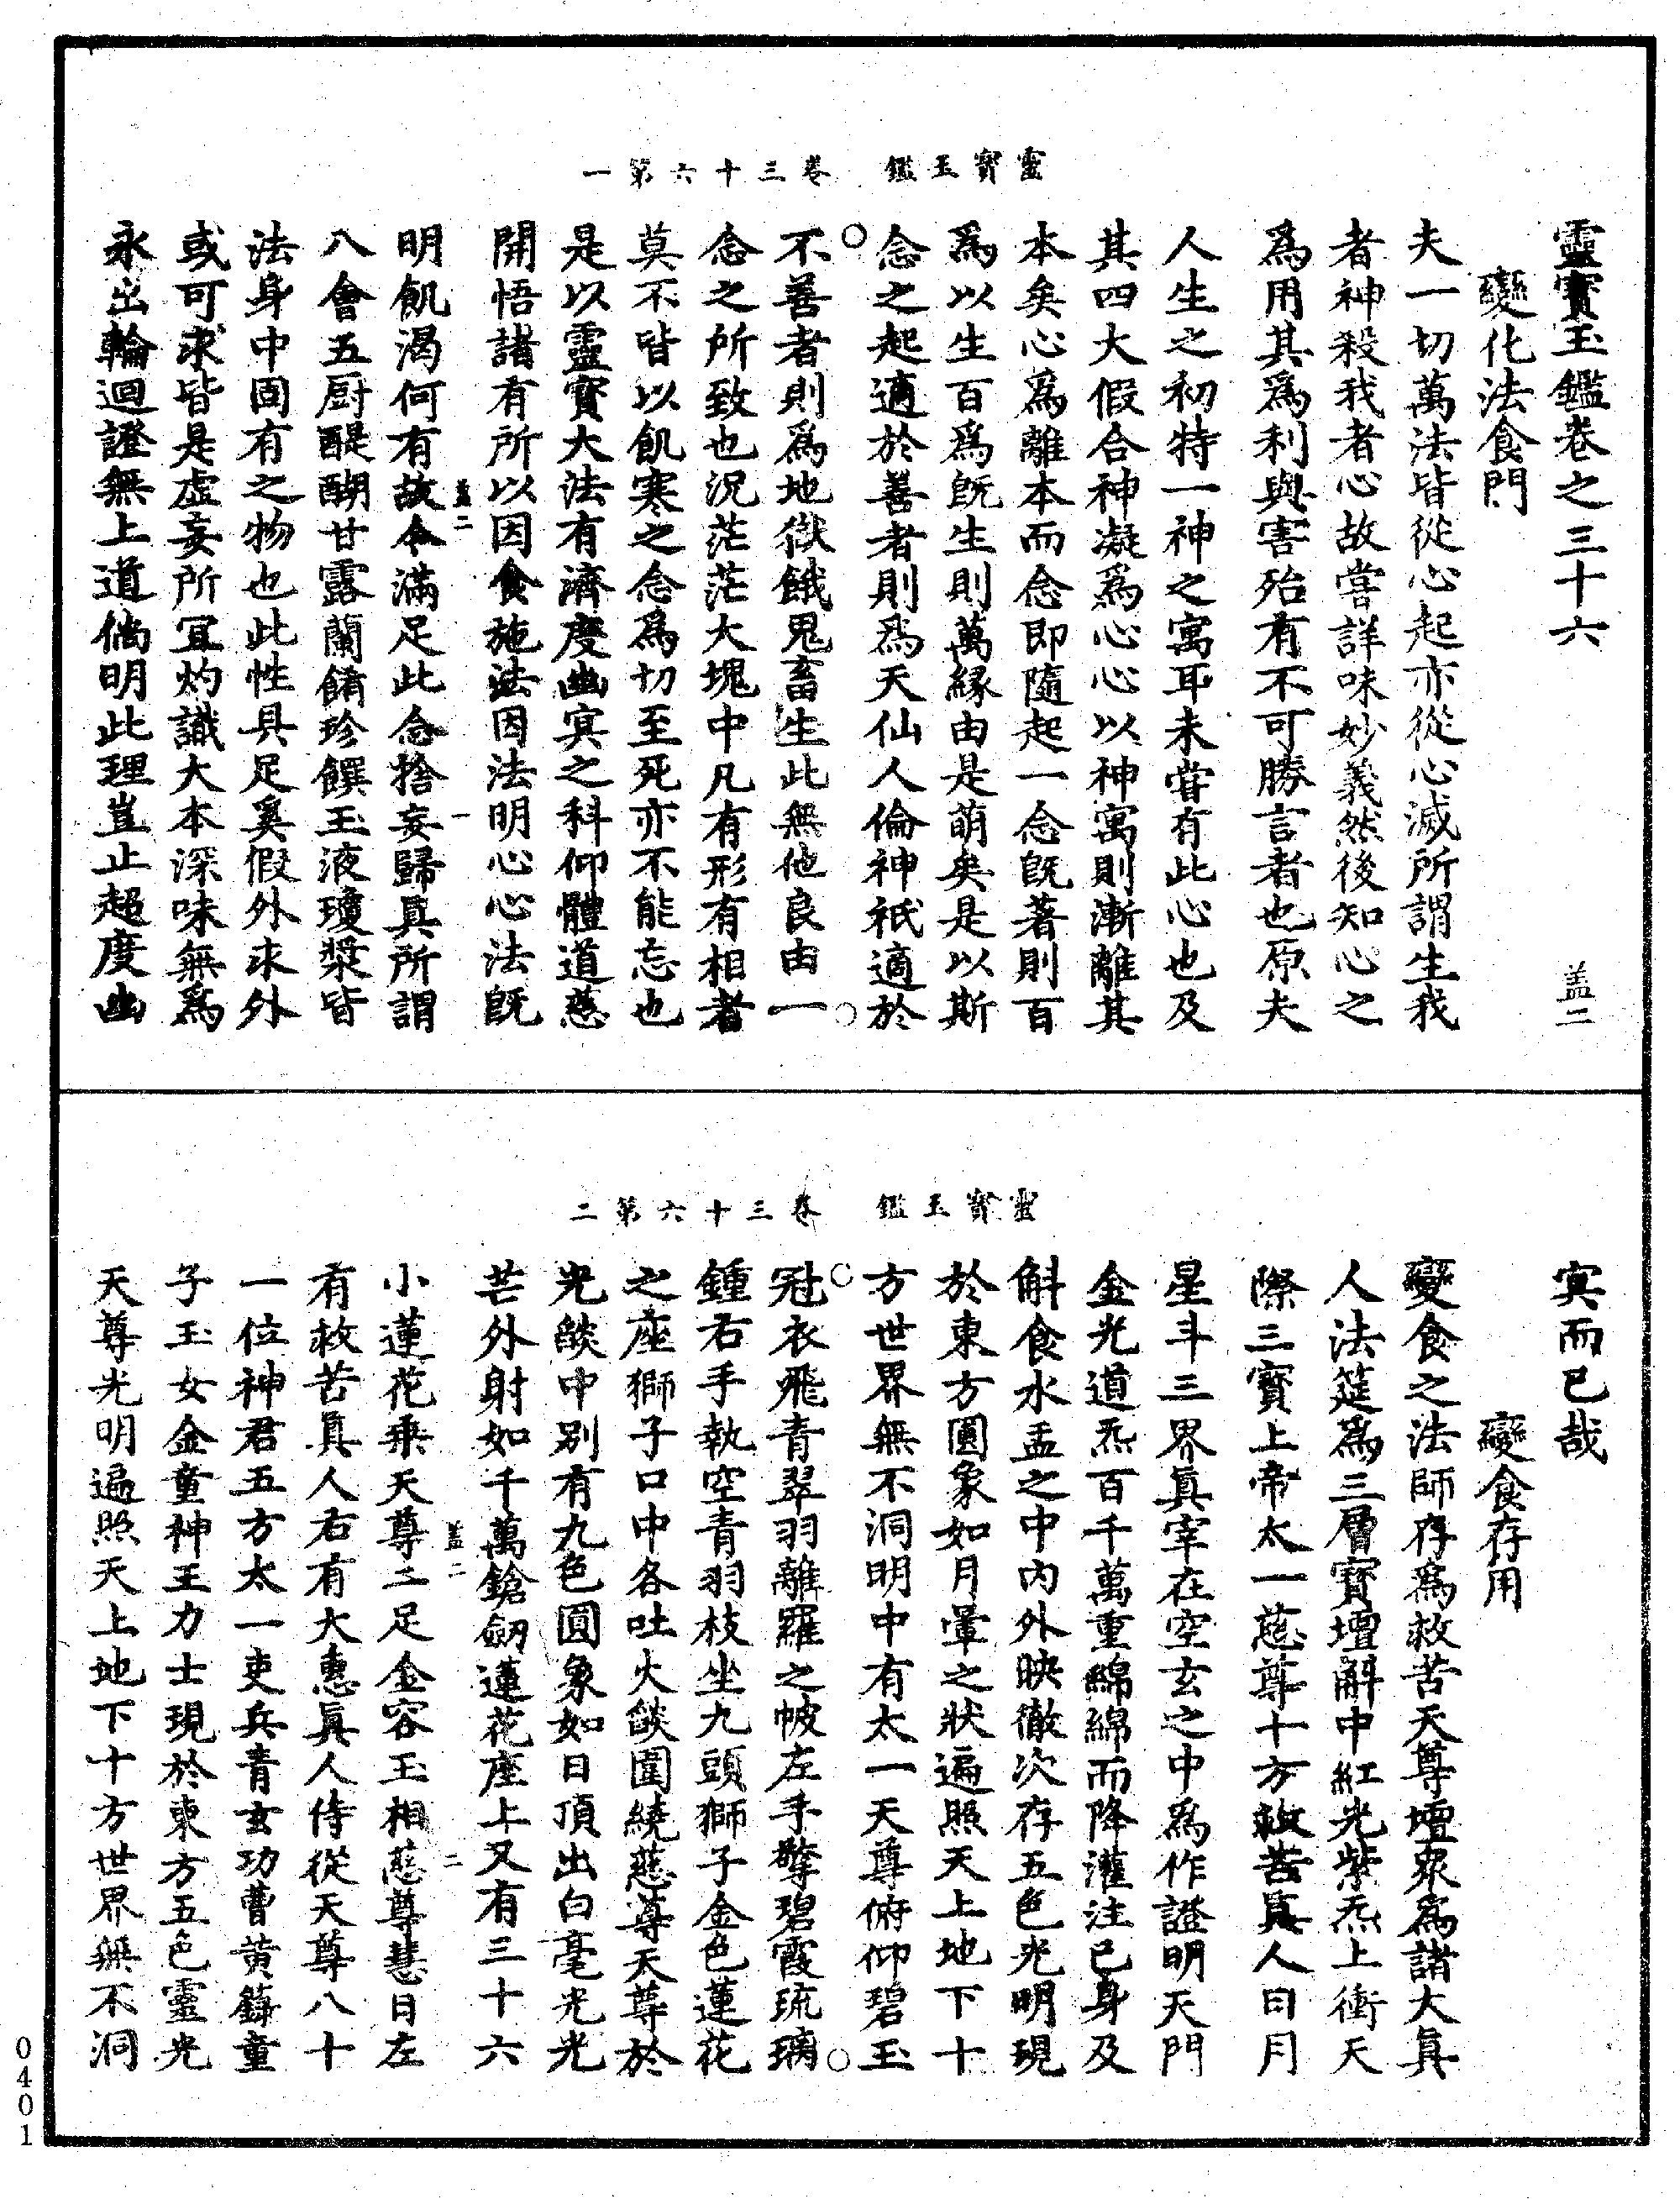 靈寶玉鑑　卷三十六第一
靈寶玉鑑卷之三十六　盖二
變化法食門
夫一切萬法皆從心起亦從心滅所謂生我
者神殺我者心故嘗詳味妙義然後知心之
爲用其爲利與害殆有不可勝言者也原夫
人生之初特一神之寓耳未嘗有此心也及
其四大假合神凝爲心心以神寓則漸離其
本矣心爲離本而念即隨起一念旣著則百
爲以生百爲旣生則萬緣由是萌矣是以斯
念之起適於善者則爲天仙人倫神祇適於
不善者則爲地獄餓鬼畜生此無他良由一
念之所致也況茫茫大塊中凡有形有相者
莫不皆以飢寒之念爲切至死亦不能忘也
是以靈寶大法有濟度幽冥之科仰體道慈
開悟諸有所以因食施法因法明心心法旣
盖二　一
明飢渴何有故令滿足此念捨妄歸真所謂
八會五厨醍醐甘露蘭餚珍饌玉液瓊漿皆
法身中固有之物也此性具足奚假外求外
或可求皆是虛妄所冝灼識大本深味無爲
永出輪迴證無上道倘明此理豈止超度幽
靈寶玉鑑　卷三十六第二
冥而已哉
變食存用
變食之法師存爲救苦天尊壇衆爲諸大真
人法筵爲三層寶壇斛中紅光紫炁上衝天
際三寶上帝太一慈尊十方救苦真人日月
星斗三界真宰在空玄之中爲作證明天門
金光道炁百千萬重綿綿而降灌注己身及
斛食水盂之中內外映徹次存五色光明現
於東方圓象如月暈之狀遍照天上地下十
方世界無不洞明中有太一天尊俯仰碧玉
冠衣飛青翠羽離羅之帔左手擎碧霞琉璃
鍾右手執空青羽枝坐九頭獅子金色蓮花
之座獅子口中各吐火燄圍繞慈尊天尊於
光燄中別有九色圓象如日頂出白毫光光
芒外射如千萬鎗劒蓮花座上又有三十六
盖二　二
小蓮花乘天尊二足金容玉相慈尊慧日左
有救苦真人右有大惠真人侍從天尊八十
一位神君五方太一吏兵青玄功曹黄籙童
子玉女金童神王力士現於東方五色靈光
天尊光明遍照天上地下十方世界無不洞
0401